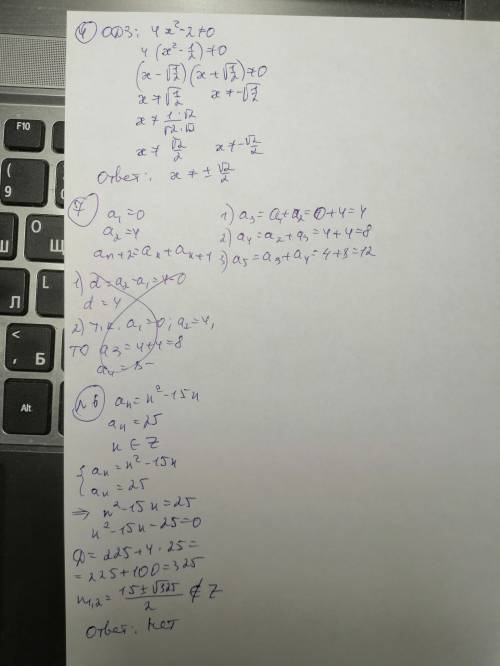 4) ОДЗ: 4x²-2≠0
4(x²-1/2)≠0
(x-√1/2)(x+√1/2)≠0
x≠√1/2 x≠-√1/2
x≠ 1·√2/√2·√2
x≠ √2/2 x≠-√2/2
Ответ: x≠±√2/2
7) a₁=0
a₂=4
aₙ+2=aₙ+aₙ+1
1) a₃=a₁+a₂=0+4=4
2) a₄=a₂+a₃=4+4=8
3) a₅=a₃+a₄=4+8=12
1) d=a₂-a₁=4-0
d=4
2) т.к. a₁=0; a₂=4,
то a₃=4+4=8
a₄=
№6 aₙ=n²-15n
aₙ=25
n∈Z
{aₙ=n²-15n
aₙ=25
⇒ n²-15n=25
n²-15n-25=0
D=225+4·25=
=225+100=325
n₁,₂=15±√325/2 ∉Z
Ответ: нет
F10
(
9
)
0
П
<
,
Б
Alt